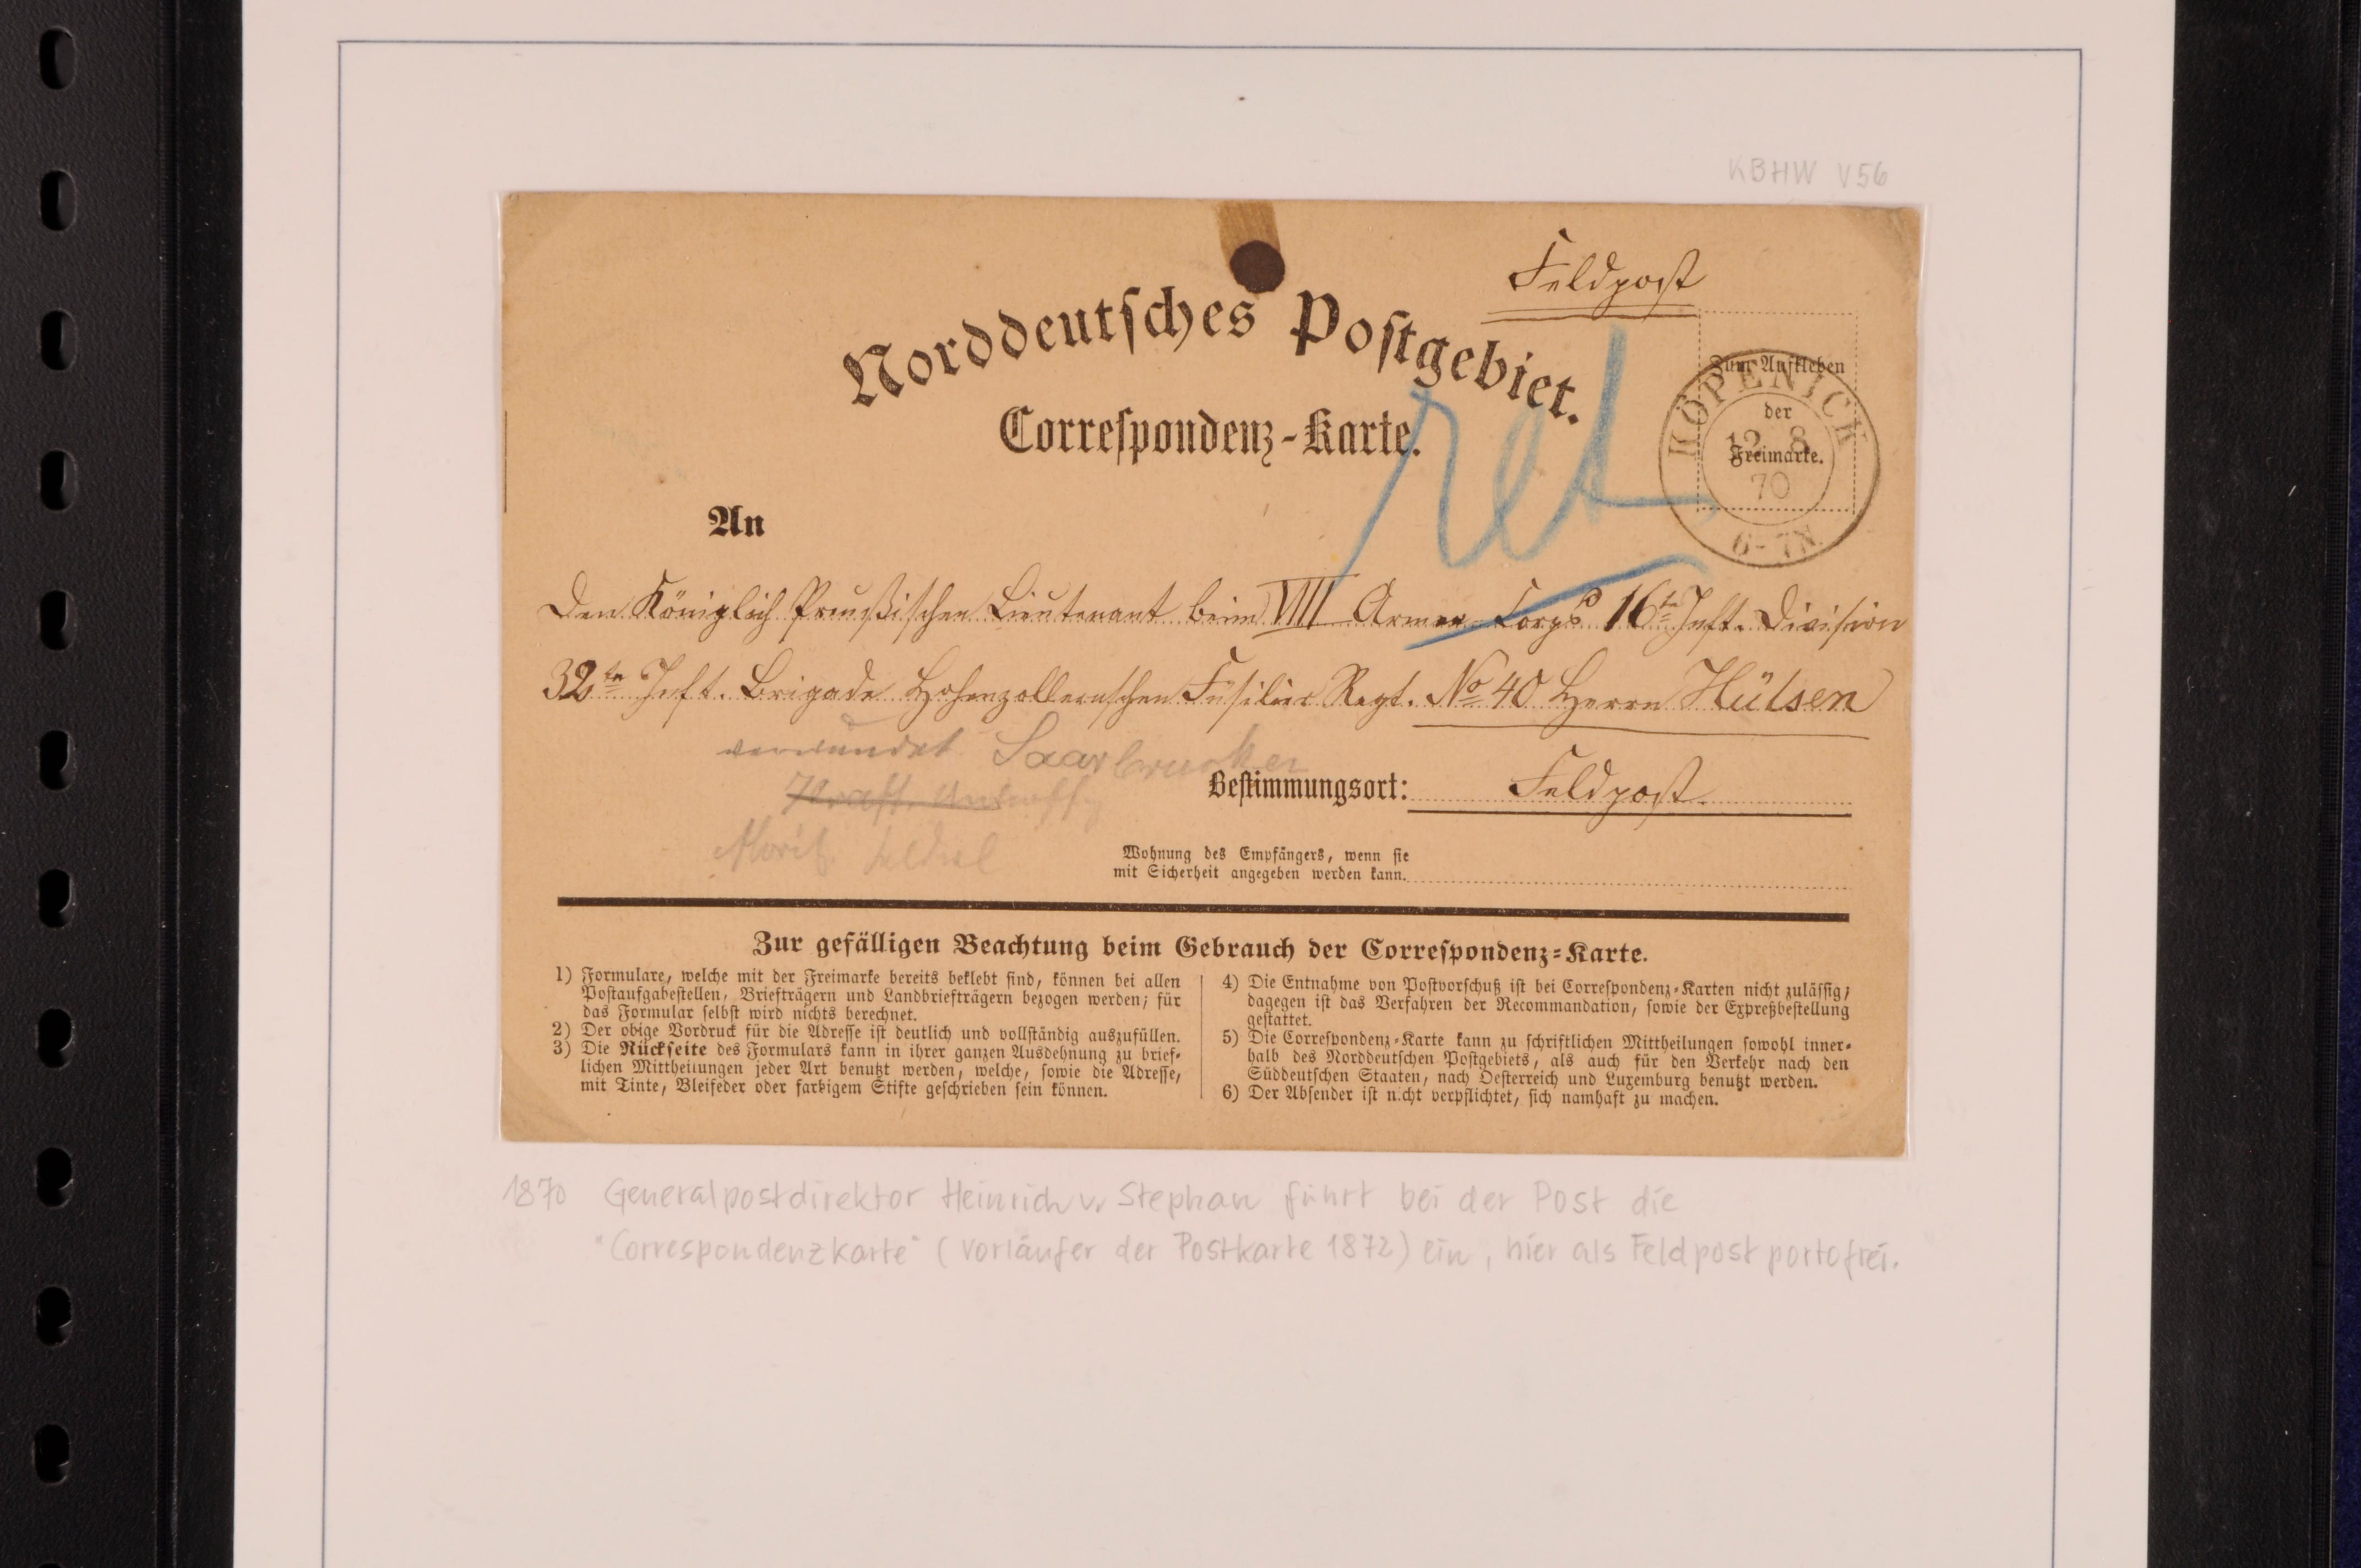 KBHW V56
Feldpost
Norddeutsches Postgebiet.
Correspondenz-Karte.
ret
Zum Aufkleben
der
Freimarke.
KÖPENICK
12 8
70
6-7N.
An
Den Königlich Preußischen Lieutenant beim VIII Armee-Corps 16te Inft. Division
32te Inft. Brigade Hohenzollernschen Füsilier Regt. No 40 Herrn Hülsen
verwundet Saarbrucken
Bestimmungsort: Feldpost.
Moritz
Wohnung des Empfängers, wenn sie
mit Sicherheit angegeben werden kann.
Zur gefälligen Beachtung beim Gebrauch der Correspondenz-Karte.
1) Formulare, welche mit der Freimarke bereits beklebt sind, können bei allen
Postaufgabestellen, Briefträgern und Landbriefträgern bezogen werden; für
das Formular selbst wird nichts berechnet.
2) Der obige Vordruck für die Adresse ist deutlich und vollständig auszufüllen.
3) Die Rückseite des Formulars kann in ihrer ganzen Ausdehnung zu brief-
lichen Mittheilungen jeder Art benutzt werden, welche, sowie die Adresse,
mit Tinte, Bleifeder oder farbigem Stifte geschrieben sein können.
4) Die Entnahme von Postvorschuß ist bei Correspondenz-Karten nicht zulässig;
dagegen ist das Verfahren der Recommandation, sowie der Expreßbestellung
gestattet.
5) Die Correspondenz-Karte kann zu schriftlichen Mittheilungen sowohl inner-
halb des Norddeutschen Postgebiets, als auch für den Verkehr nach den
Süddeutschen Staaten, nach Oesterreich und Luxemburg benutzt werden.
6) Der Absender ist nicht verpflichtet, sich namhaft zu machen.
1870 Generalpostdirektor Heinrich v. Stephan führt bei der Post die
"Correspondenzkarte" (Vorläufer der Postkarte 1872) ein, hier als Feldpost portofrei.